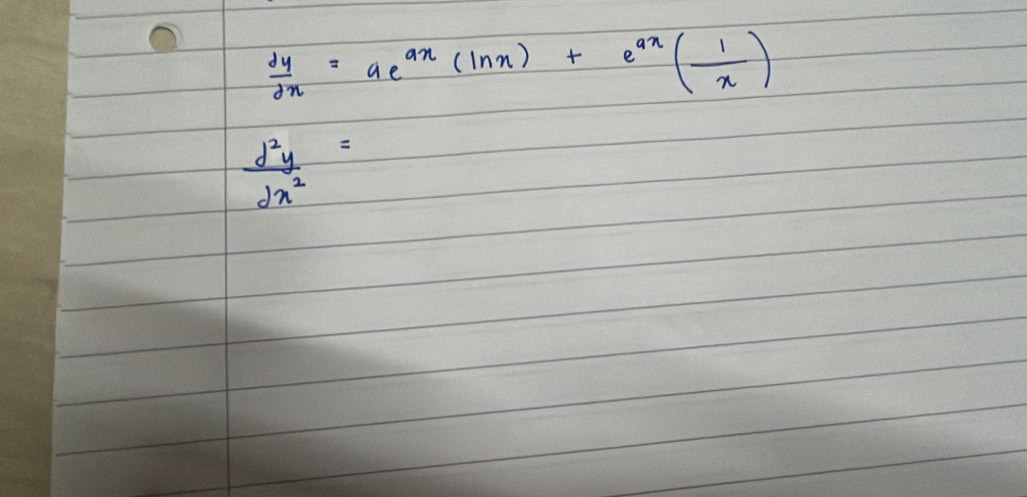 dy/dx = ae^{ax} (ln x) + e^{ax} (1/x)
d²y/dx² =